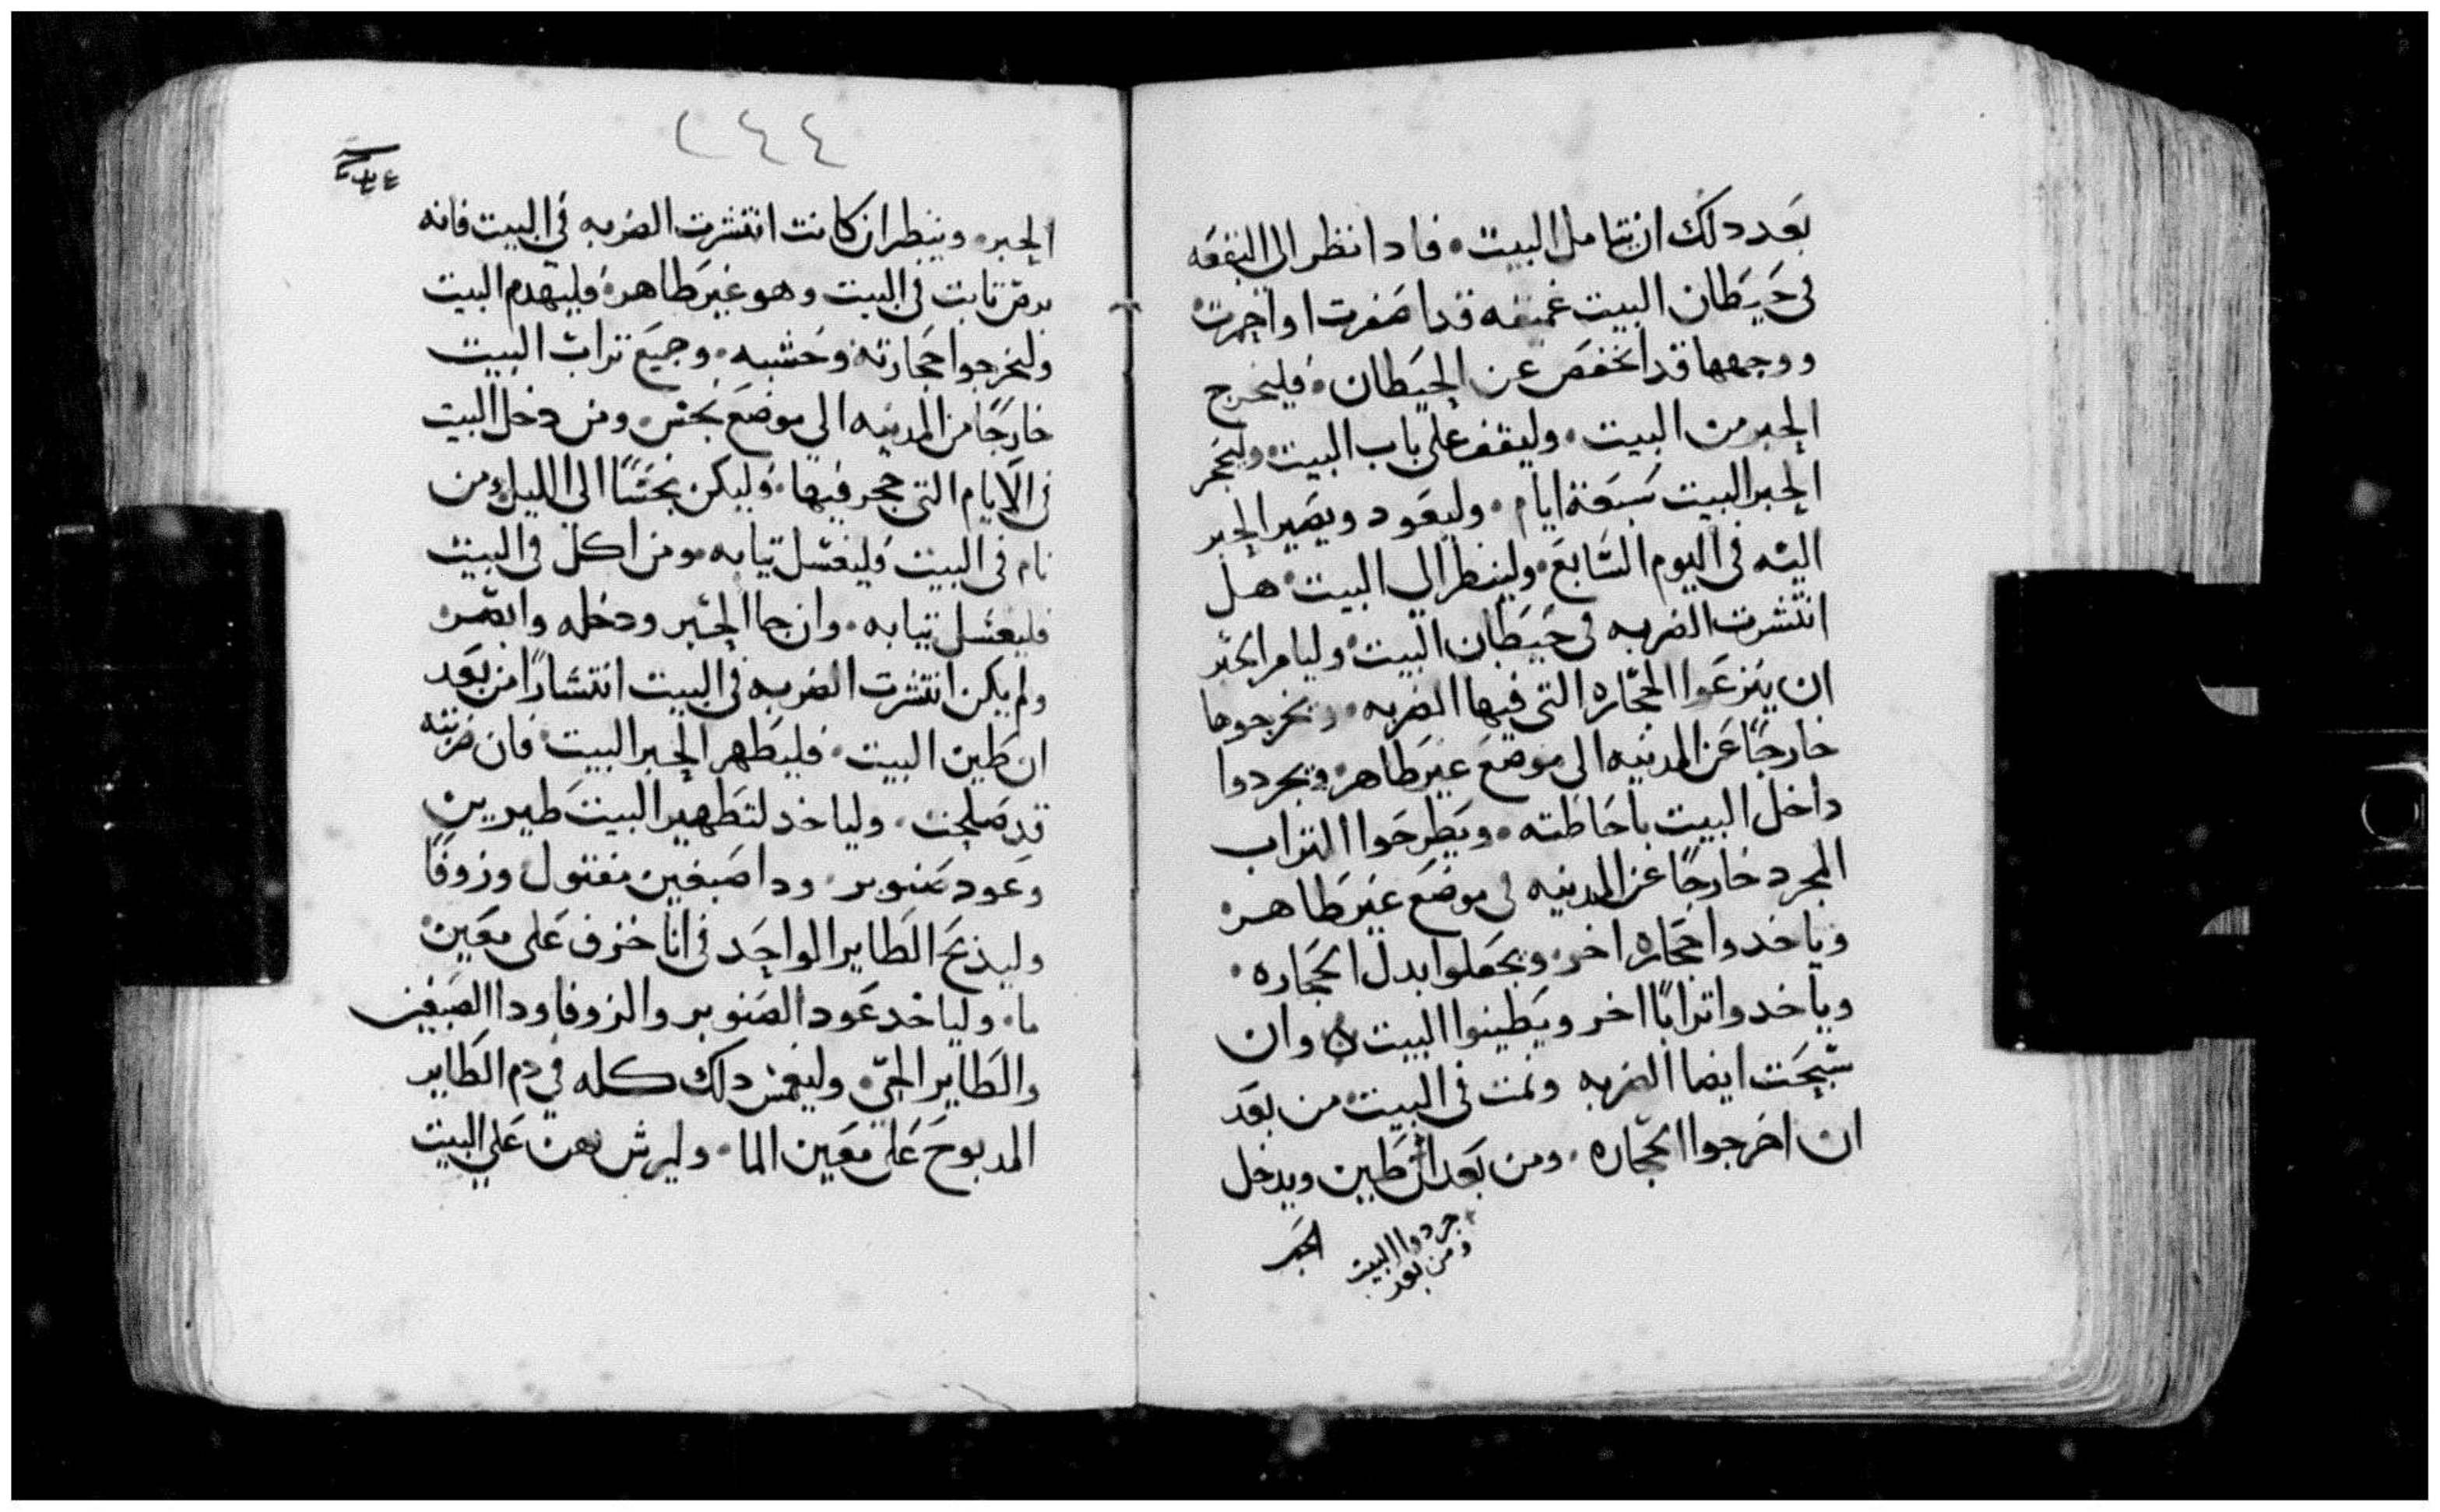 بعد دلك ان يتامل البيت. فادا نظر الى البقعه
فى حيطان البيت عميقه قد اصفرت او احمرت
ووجهها قد انخفض عن الحيطان. فليخرج
الحبر من البيت. وليقف على باب البيت وليحجر
الحبر البيت سبعة ايام. وليعود ويصير الحبر
اليه فى اليوم السابع. ولينظر الى البيت هل
انتشرت الضربه فى حيطان البيت وليامر الحبر
ان ينزعوا الحجاره التى فيها الضربه. ويخرجوها
خارجًا عن المدينه الى موضع غير طاهر ويجردوا
داخل البيت باحاطته. ويطرحوا التراب
المجرد خارجًا عن المدينه فى موضع غير طاهر
وياخدوا حجاره اخر ويجعلوا بدل الحجاره.
وياخدوا ترابًا اخر ويطينوا البيت ه وان
سبحت ايضا الضربه ونمت فى البيت من بعد
ان اخرجوا الحجاره. ومن بعد ان طين ويدخل
جردوا البيت
ومن بعد
الحبر
٢٤٤
الحبر. وينظر ان كانت انتشرت الضربه فى البيت فانه
برص ثابت فى البيت وهو غير طاهر فليهدم البيت
وليخرجوا حجارته وخشبه. وجميع تراب البيت
خارجًا من المدينه الى موضع نجس. ومن دخل البيت
فى الايام التى حجر فيها. فليكن نجسًا الى الليل ومن
نام فى البيت فليغسل تيابه ومن اكل فى البيت
فليغسل تيابه. وان جا الحبر ودخله وابصره
ولم يكن انتشرت الضربه فى البيت انتشارًا من بعد
ان طين البيت. فليطهر الحبر البيت فان ضربته
قد صلحت. ولياخد لتطهير البيت طيرين
وعود صنوبر. ودا صبغين مفتول وزوفًا
وليذبح الطاير الواحد فى انا خزف على معين
ما. ولياخد عود الصنوبر والزوفا ودا الصبغين
والطاير الحى. وليغمس دلك كله فى دم الطاير
المدبوح على معين الما. وليرش بهن على البيت